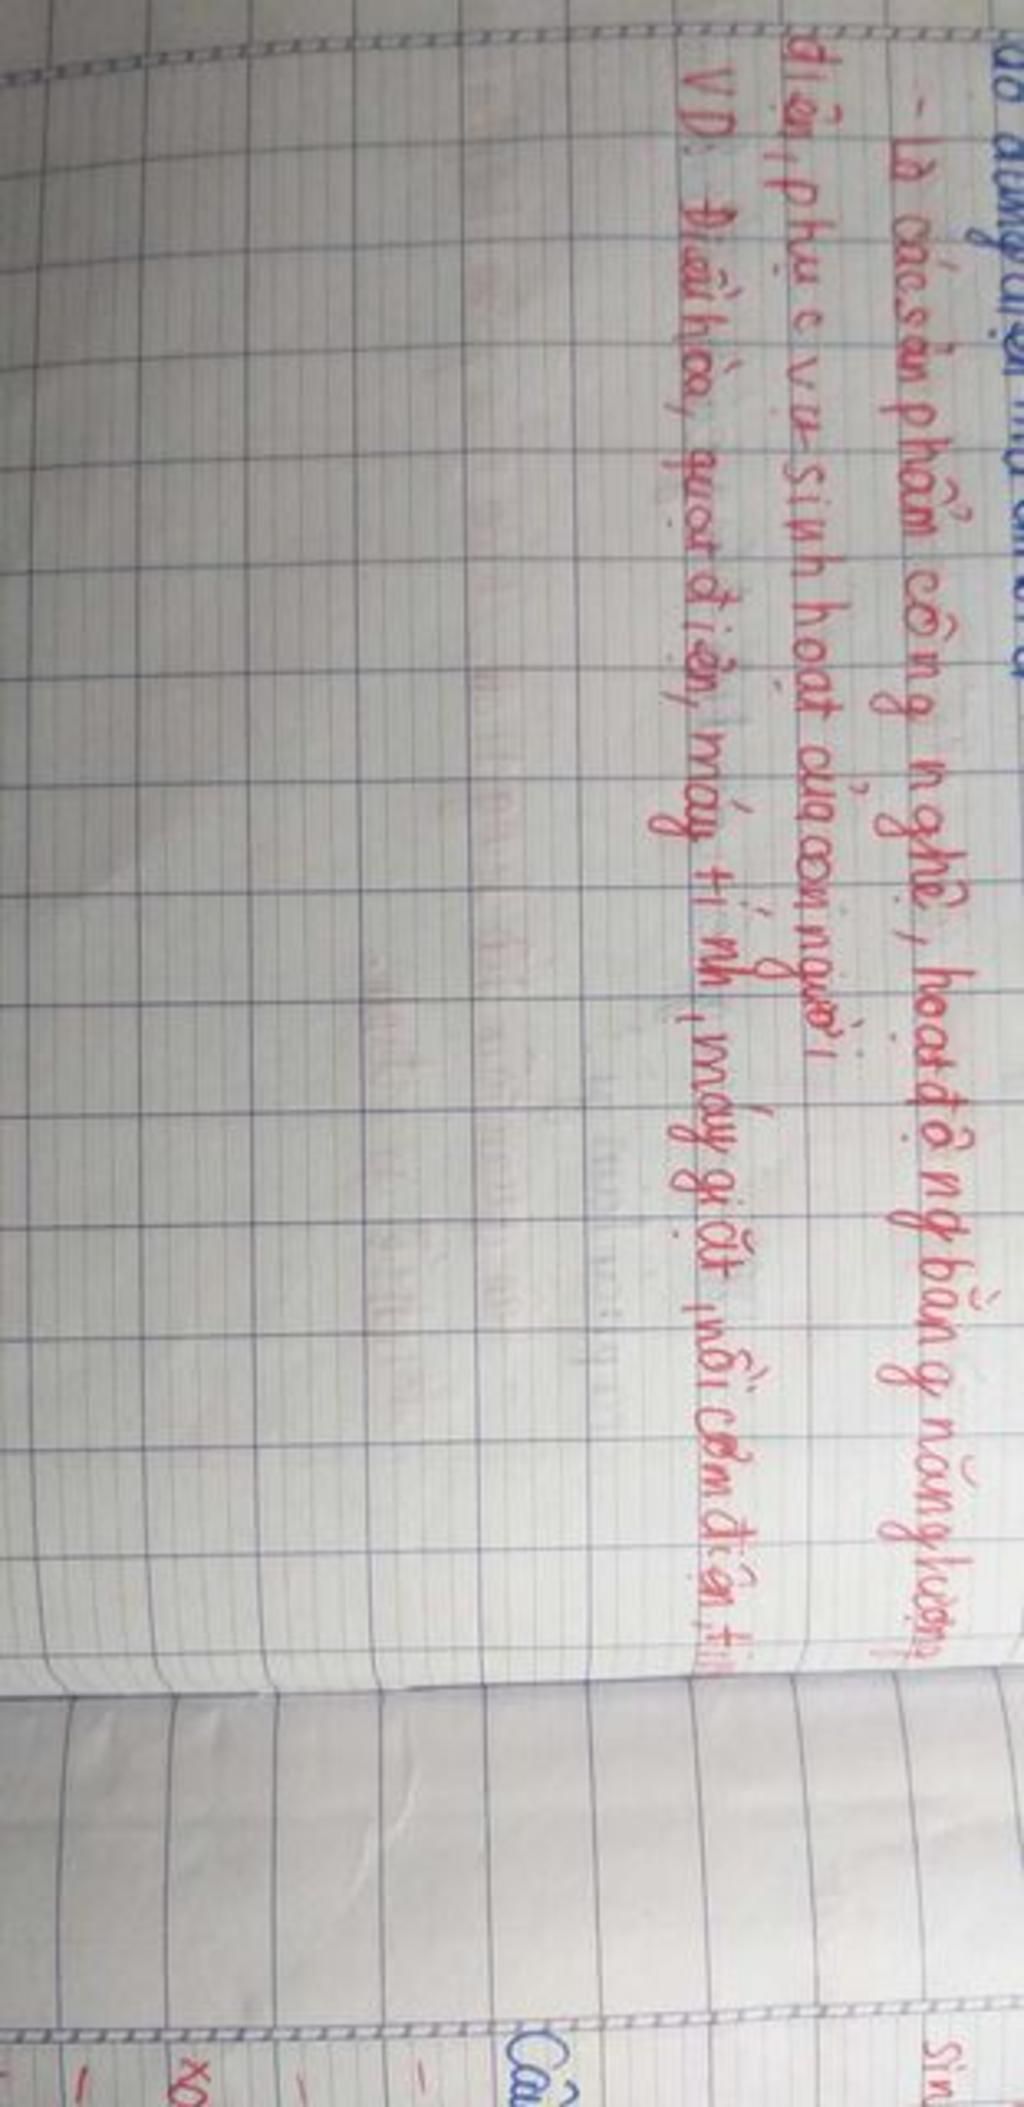 đồ dùng điện
- Là các sản phẩm công nghệ, hoạt động bằng năng lượng
điện, phục vụ sinh hoạt của con người
VD: Điều hòa, quạt điện, máy tính, máy giặt, nồi cơm điện,
sin
Câu
-
-
xo
-